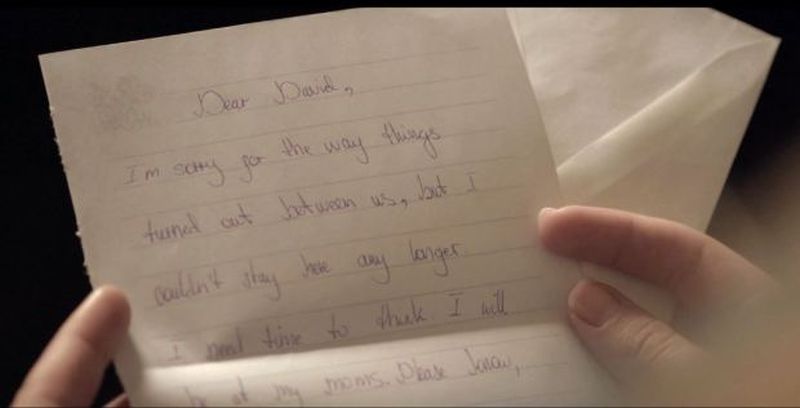 Dear David,
I'm sorry for the way things
turned out between us, but I
couldn't stay here any longer
I need time to think I will
be at my moms. Please know,